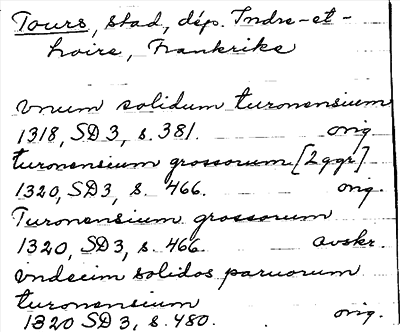 Tours, stad, dép. Indre-et-
Loire, Frankrike
vnum solidum turonensium
1318, SD 3, s. 381. orig.
turonensium grossorum [2ggr]
1320, SD3, s. 466. orig.
Turonensium grossorum
1320, SD 3, s. 466. avskr.
vndecim solidos paruorum
turonensium
1320 SD 3, s. 480. orig.